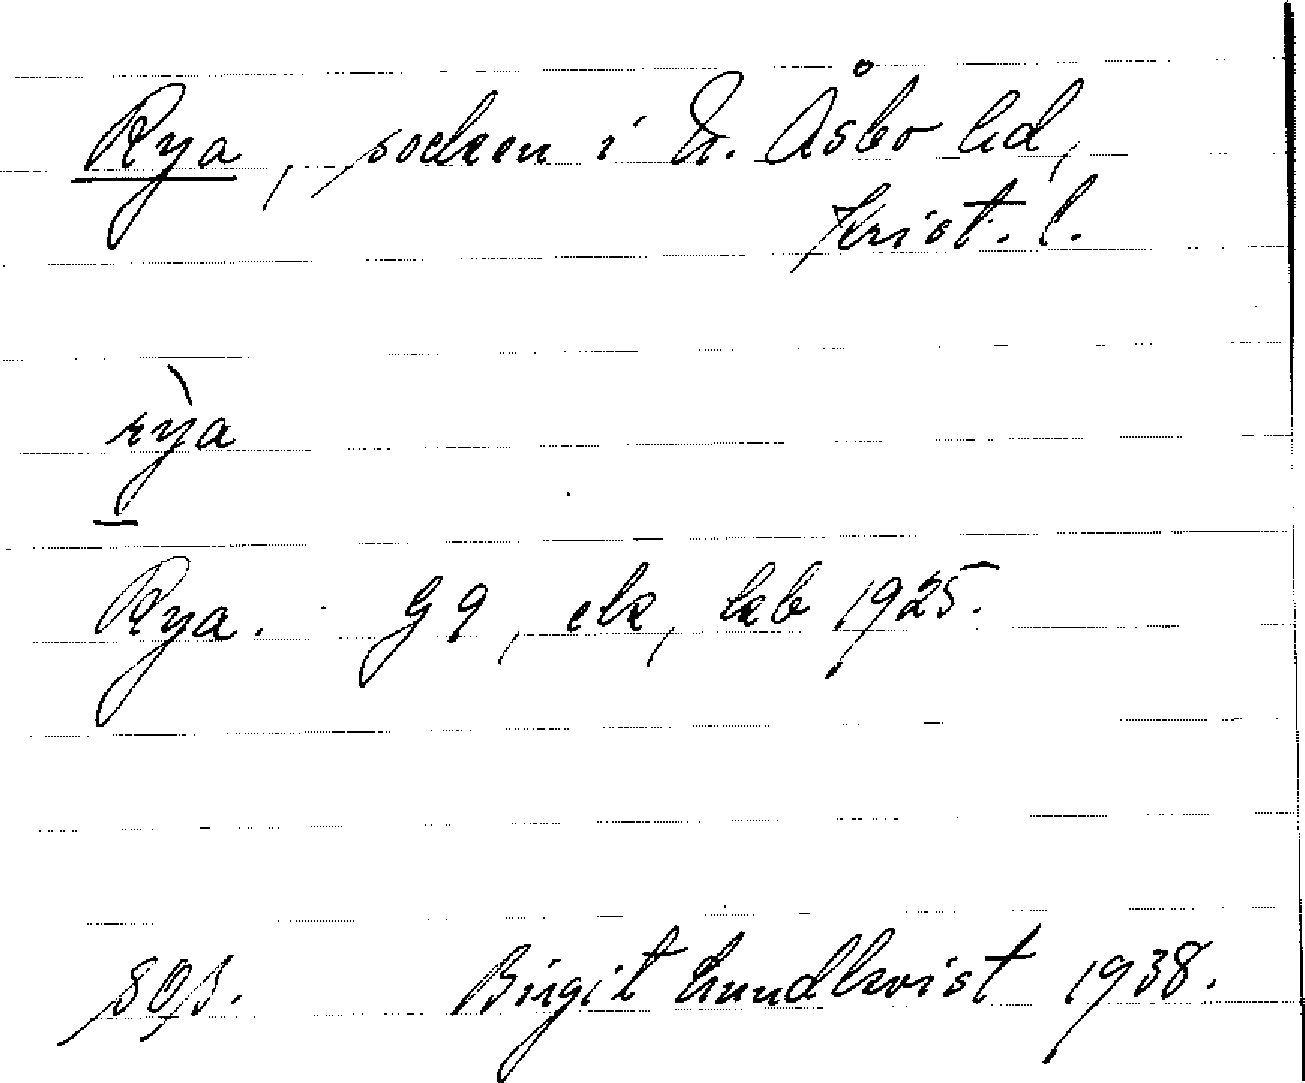 Rya, socken i N. Åsbo hd,
Krist. l.
rỳa
Rya. G9, ek, kb 1925.
Birgit Lundkvist 1938.